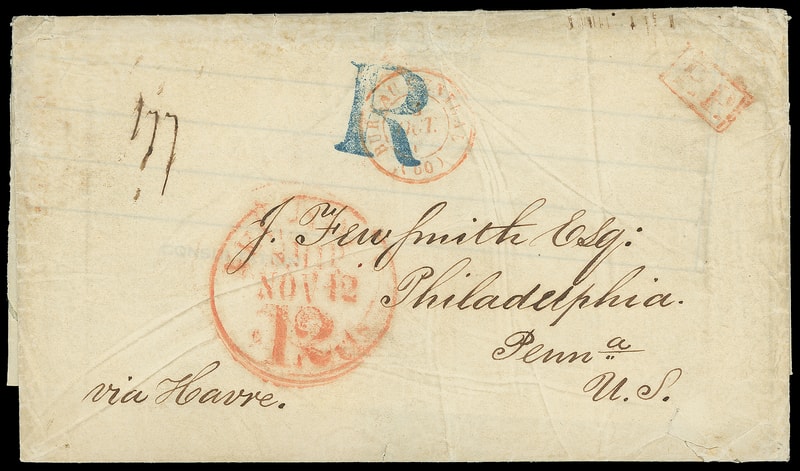 R
P.P.
177
SHIP
NOV 12
12
J. Few Smith Esq:
Philadelphia.
Penna
U.S.
via Havre.